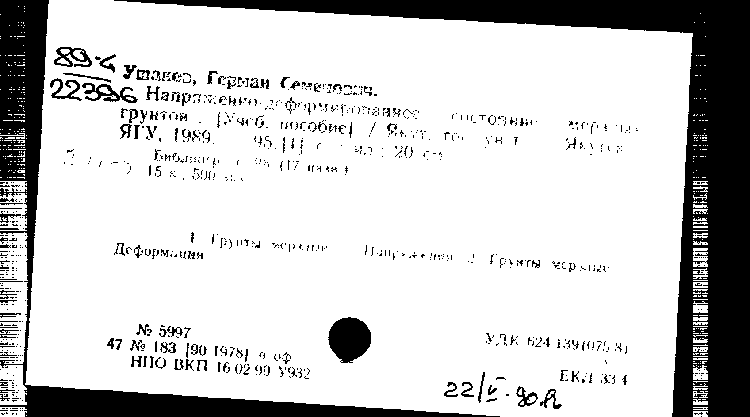 89-4
22396
Ушаков, Герман Семенович.
Напряженно-деформированное состояние мерзлых
грунтов : [Учеб. пособие] / Якут. гос. ун-т. Якутск
ЯГУ, 1989. 95,[1] с. : ил. ; 20 см
Библиогр. с. 95 (17 назв.)
15 к., 500 экз.
1. Грунты мерзлые Напряжения 2. Грунты мерзлые
Деформация
№ 5997
47 № 183 [90-1978] о оф
НПО ВКП 16.02.90 У932
УДК 624.139(075.8)
ЕКЛ 33.4
22/V-90